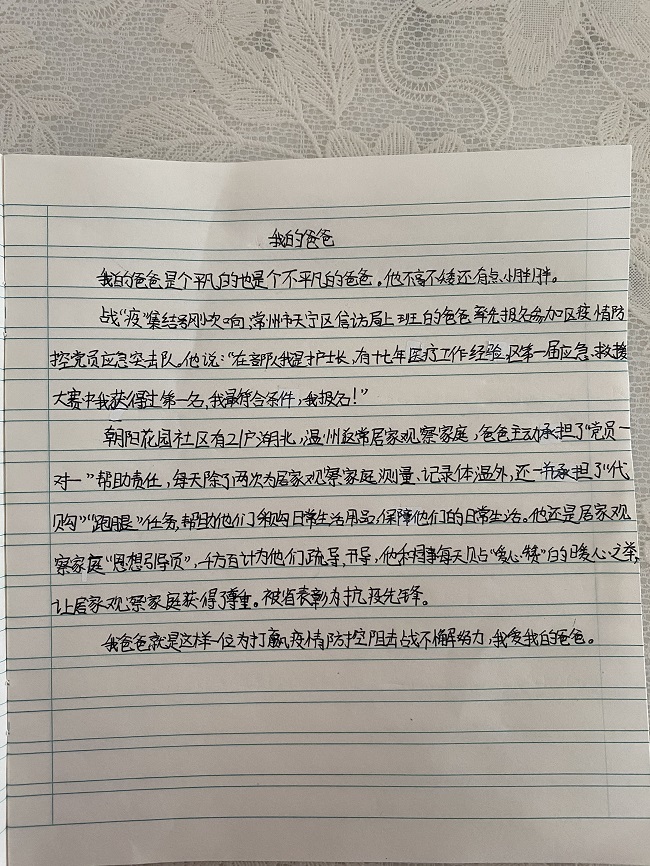 我的爸爸
我的爸爸是个平凡的也是个不平凡的爸爸。他不高不矮还有点小胖胖。
战“疫”集结号吹响,常州市天宁区信访局上班的爸爸率先报名参加区疫情防
控党员应急突击队。他说:“在部队我是护士长,有十七年医疗工作经验,区第一届应急救援
大赛中我获得过第一名,我最符合条件,我报名!”
朝阳花园社区有21户湖北,温州返常居家观察家庭,爸爸主动承担了“党员一
对一”帮助责任,每天除了两次为居家观察家庭测量、记录体温外,还一并承担了“代
购”“跑腿”任务,帮助他们采购日常生活用品,保障他们的日常生活。他还是居家观
察家庭“思想引导员”,千方百计为他们疏导,开导,他和同事每天贝占“爱心赞”的暖心之举,
让居家观察家庭获得了尊重。被省表彰为抗疫先锋。
我爸爸就是这样一位为打赢疫情防控阻击战不懈努力,我爱我的爸爸。